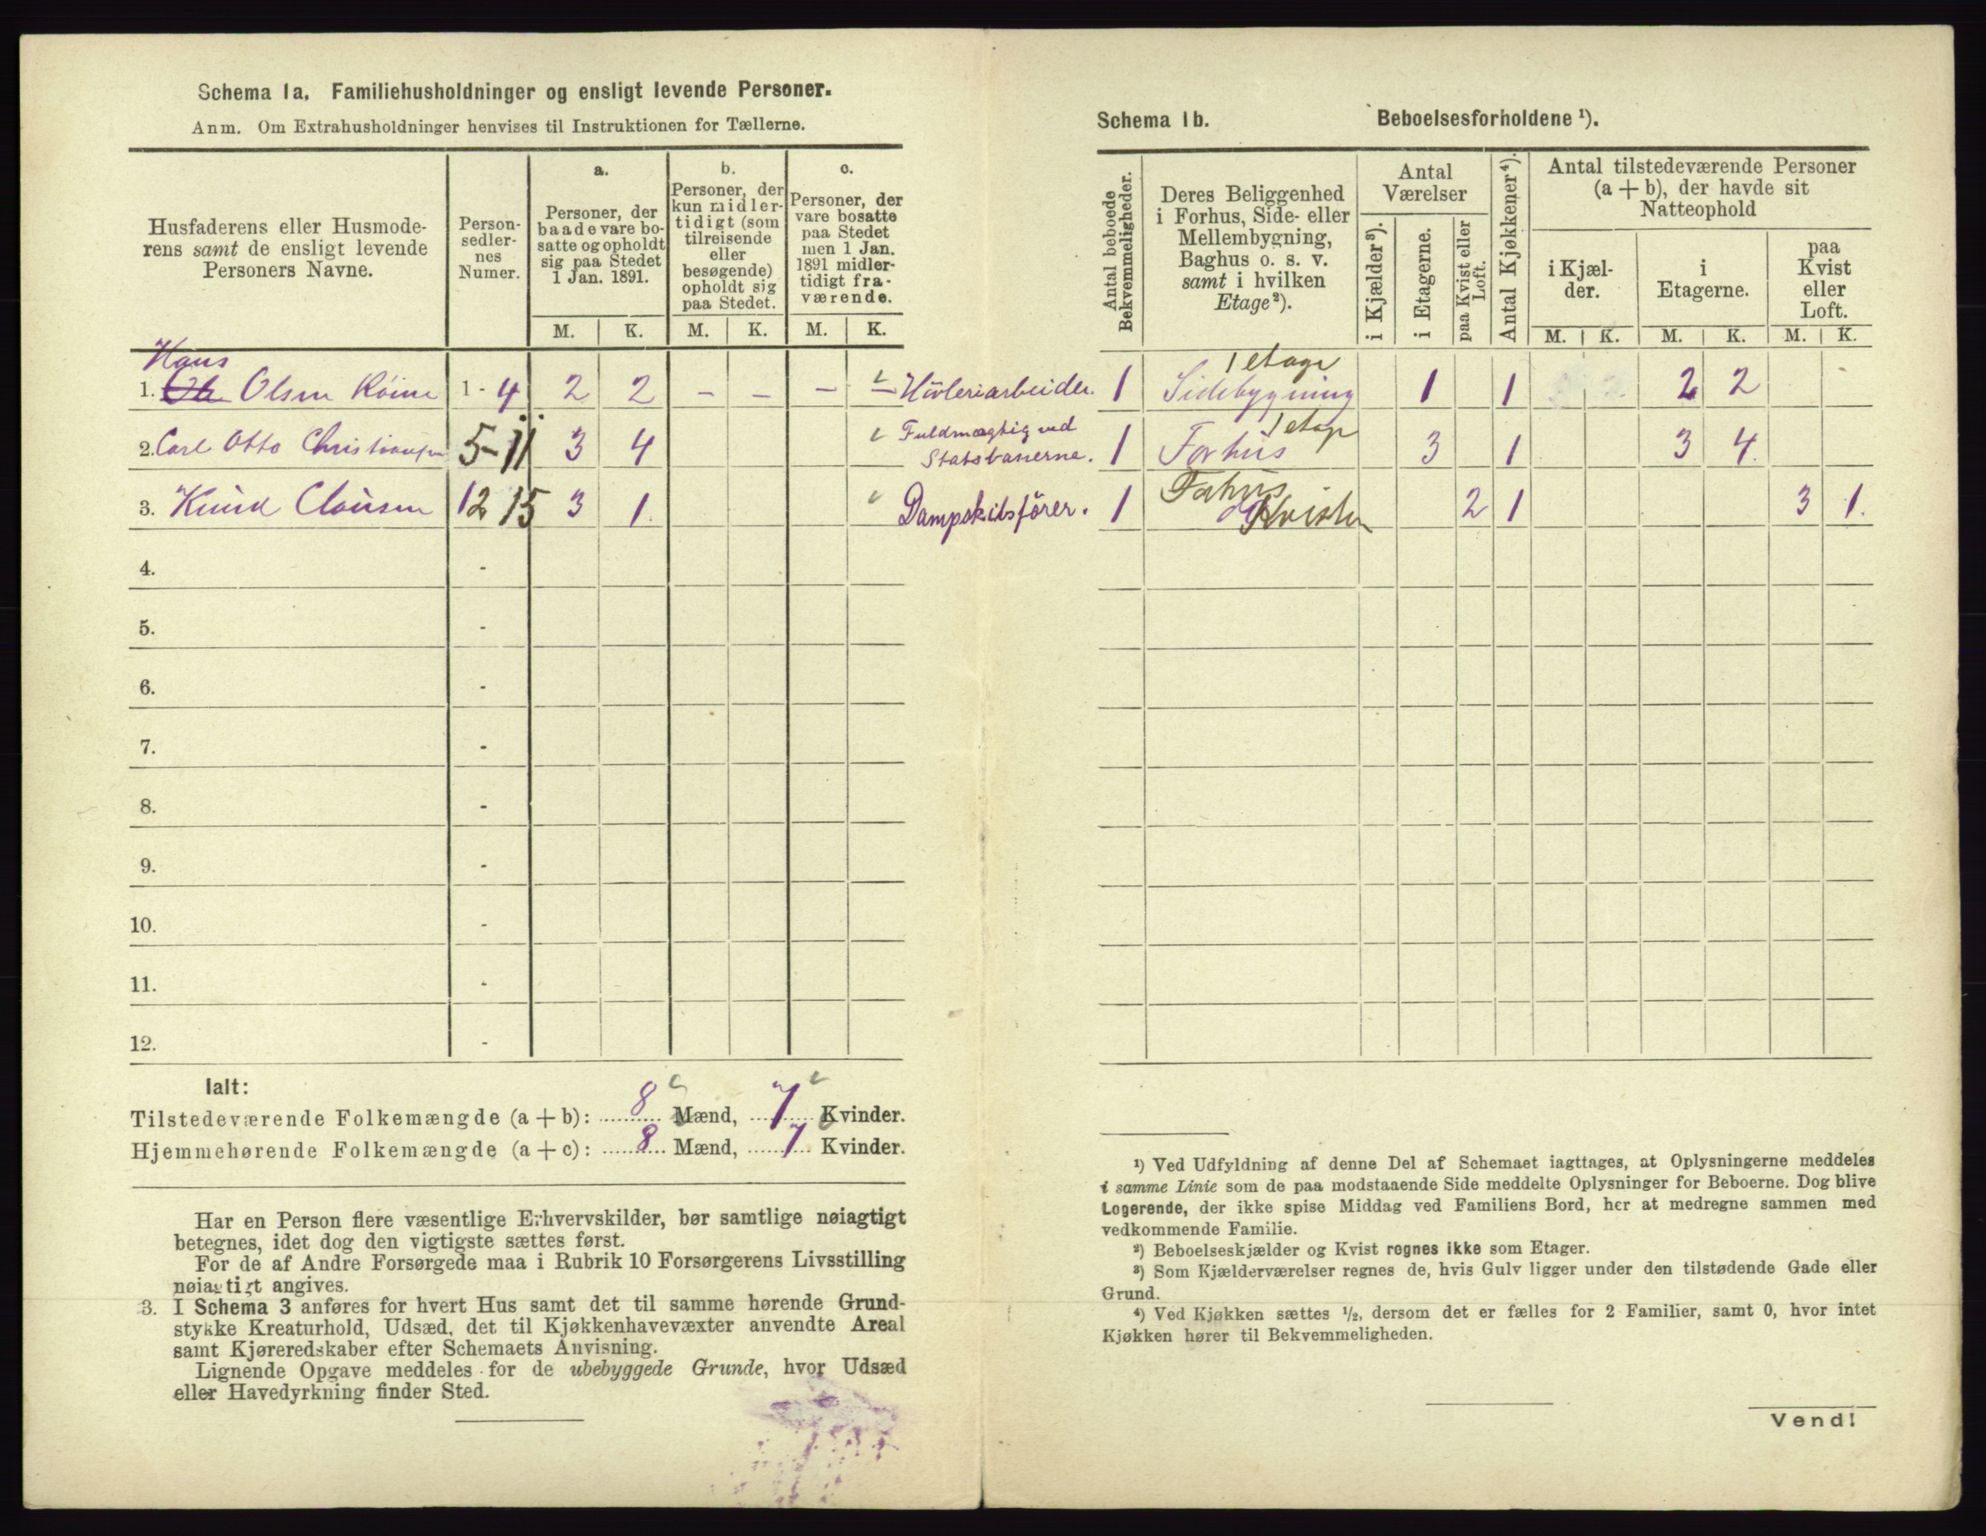 Schema 1a. Familiehusholdninger og ensligt levende Personer.
Anm. Om Extrahusholdninger henvises til Instruktionen for Tællerne.
Husfaderens eller Husmode-
rens samt de ensligt levende
Personers Navne.
Person-
sedler-
nes
Numer.
a.
Personer, der
baade vare bo-
satte og opholdt
sig paa Stedet
1 Jan. 1891.
b.
Personer, der
kun midler-
tidigt (som
tilreisende
eller
besøgende)
opholdt sig
paa Stedet.
c.
Personer, der
vare bosatte
paa Stedet
men 1 Jan.
1891 midler-
tidigt fra-
værende.
M. K. M. K. M. K.
Hans
1. Ole Olsen Röine 1 - 4 2 2 - - - - Hövleriarbeider.
2. Carl Otto Christiansen 5-11 3 4 Fuldmægtig ved
Statsbanerne.
3. Knud Clausen 12 15 3 1. Dampskibsförer.
4. -
5. -
6. -
7. -
8. -
9. -
10. -
11. -
12. -
Ialt:
Tilstedeværende Folkemængde (a + b): 8 Mænd, 7 Kvinder.
Hjemmehørende Folkemængde (a + c): 8 Mænd, 7 Kvinder.
Har en Person flere væsentlige Erhvervskilder, bør samtlige nøiagtigt
betegnes, idet dog den vigtigste sættes først.
For de af Andre Forsørgede maa i Rubrik 10 Forsørgerens Livsstilling
nøiagtigt angives.
3. I Schema 3 anføres for hvert Hus samt det til samme hørende Grund-
stykke Kreaturhold, Udsæd, det til Kjøkkenhavevæxter anvendte Areal
samt Kjøreredskaber efter Schemaets Anvisning.
Lignende Opgave meddeles for de ubebyggede Grunde, hvor Udsæd
eller Havedyrkning finder Sted.
Schema 1b. Beboelsesforholdene ¹).
Antal beboede
Bekvemmeligheder.
Deres Beliggenhed
i Forhus, Side- eller
Mellembygning,
Baghus o. s. v.
samt i hvilken
Etage²).
Antal
Værelser
i Kjælder³).
i Etagerne.
paa Kvist eller
Loft.
Antal Kjøkkener⁴).
Antal tilstedeværende Personer
(a + b), der havde sit
Natteophold
i Kjæl-
der.
i
Etagerne.
paa
Kvist
eller
Loft.
M. K. M. K. M. K.
1 etage
1 Sidebygning 1 1 2 2
1 etage
1 Forhus 3 1 3 4
Forhus
1 Kvisten 2 1 3 1.
¹) Ved Udfyldning af denne Del af Schemaet iagttages, at Oplysningerne meddeles
i samme Linie som de paa modstaaende Side meddelte Oplysninger for Beboerne. Dog blive
Logerende, der ikke spise Middag ved Familiens Bord, her at medregne sammen med
vedkommende Familie.
²) Beboelseskjælder og Kvist regnes ikke som Etager.
³) Som Kjælderværelser regnes de, hvis Gulv ligger under den tilstødende Gade eller
Grund.
⁴) Ved Kjøkken sættes ½, dersom det er fælles for 2 Familier, samt 0, hvor intet
Kjøkken hører til Bekvemmeligheden.
Vend!